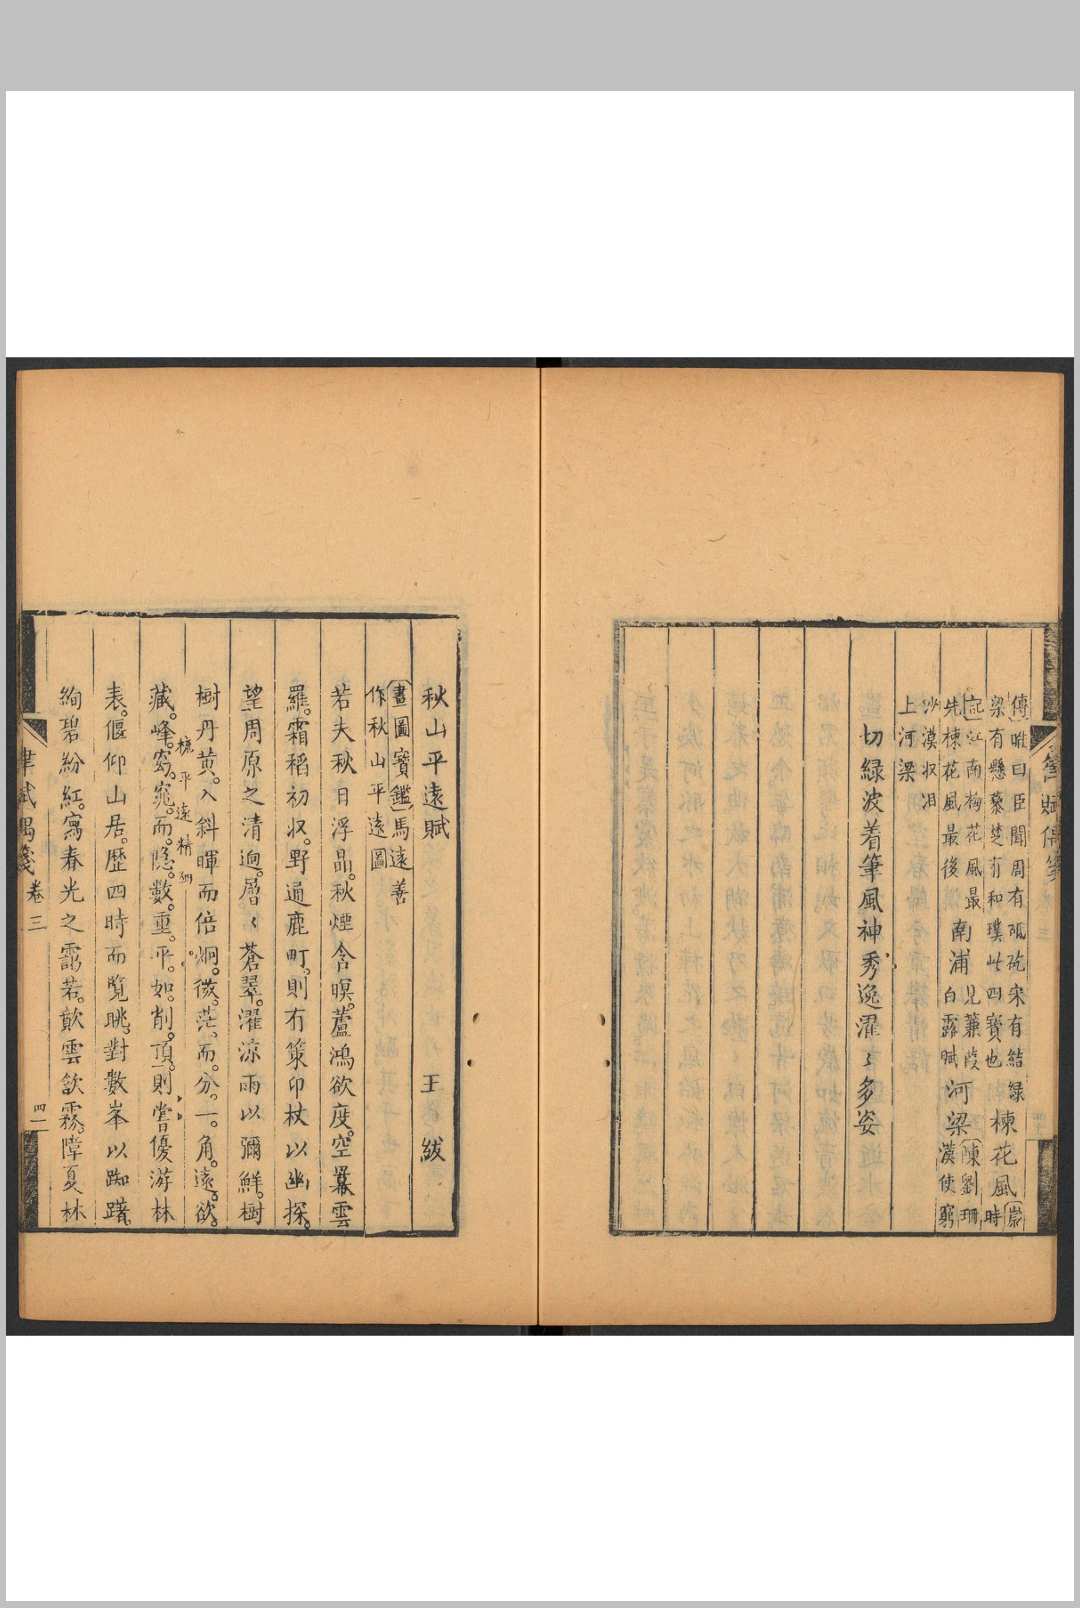 傳睢曰臣聞周有砥砨宋有結緑
梁有懸藜楚有和璞此四寶也
楝花風
時
記江南梅花風最
先楝花風最後
南浦
見蒹葭
白露賦
河梁
陳劉珊
漢使窮
沙漠収泪
上河梁
切緑波着筆風神秀逸濯〻多姿
秋山平遠賦
王綍
畫圖寶鑑馬遠善
作秋山平遠圖
若夫秋日浮晶。秋煙含暝。蘆鴻欲度。空暴雲
羅。霜稻初収。野過鹿町。則有策卬杖以幽探。
望周原之清逈。層〻蒼翠。濯涼雨以彌鮮。樹
樹丹黄。入斜暉而倍炯。微。茫。而。分。一。角。遠。欲。
梳平遠精細
藏。峰。窈。窕。而。隠。數。重。平。如。削。頂。則嘗優游林
表。偃仰山居。歴四時而覧眺。對數峯以踟躇。
絢碧紛紅。寫春光之靄若。歊雲歛霧。障夏林
律賦偶箋
卷三
四一